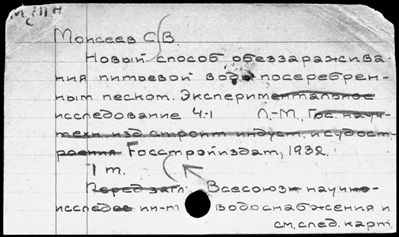 Моисеев С.В.
Новый способ обеззаражива-
ния питьевой воды посеребрен-
ным песком. Экспериментальное
исследование ч.1 Л.-М., Гос. науч-
техн. изд. строит. индуст. и судост-
роения Госстройиздат, 1932.
1 т.
Перед загл. Всесоюзн научно-
исследов ин-т водоснабжения и
см. след. карт.